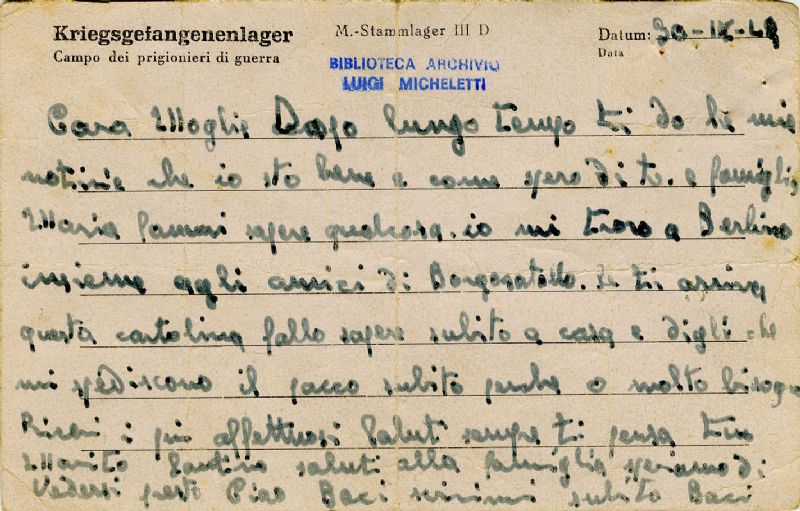 Kriegsgefangenenlager
Campo dei prigionieri di guerra
M.-Stammlager III D
Datum: 30-IX-43
Data
BIBLIOTECA ARCHIVIO
LUIGI MICHELETTI
Cara Moglie Dopo lungo tempo ti do le mie
notizie che io sto bene e come spero di te. e famiglia,
Maria fammi sapere qualcosa. io mi trovo a Berlino
insieme agli amici di Borgosatollo. Se ti arriva
questa cartolina fallo sapere subito a casa e digli che
mi spediscono il pacco subito perche o molto bisogno
i piu affettuosi Saluti sempre ti pensa tuo
Marito Santino saluti alla famiglia speriamo di
Vedersi presto Ciao Baci scrivimi subito Baci